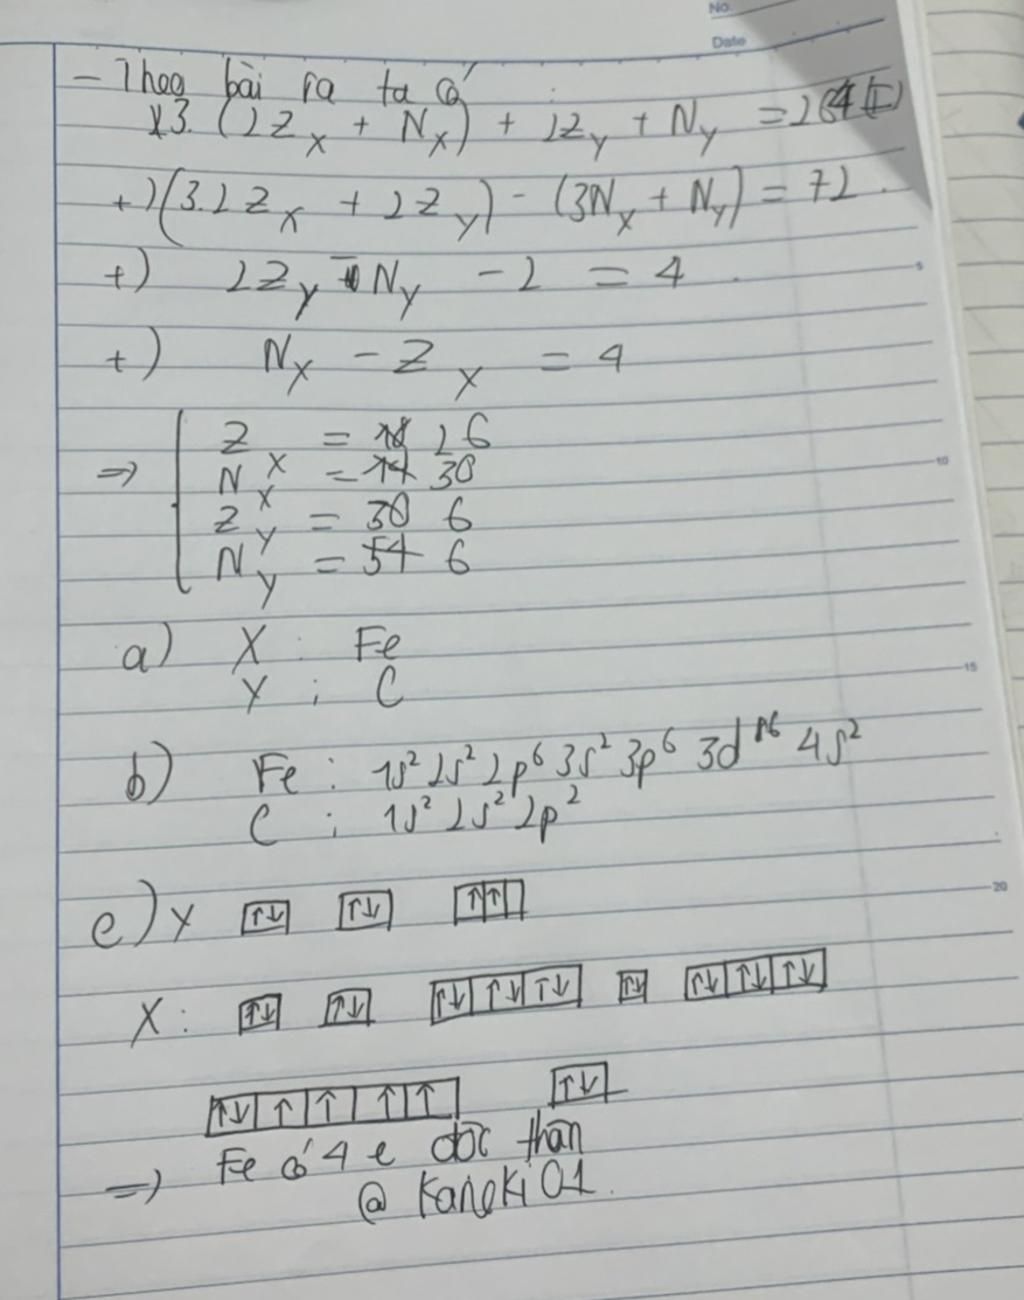 No.
Date
- Theo bài ra ta có
3.(2Z_X + N_X) + 2Z_Y + N_Y = 264 (1)
+) (3.2Z_X + 2Z_Y) - (3N_X + N_Y) = 72
+) 2Z_Y - N_Y - 2 = 4
+) N_X - Z_X = 4
5
=> Z_X = 26
N_X = 30
10
Z_Y = 6
N_Y = 6
a) X : Fe
15
Y : C
b) Fe : 1s² 2s² 2p⁶ 3s² 3p⁶ 3d⁶ 4s²
C : 1s² 2s² 2p²
20
c) Y ↑↓ ↑↓ ↑ ↑
X: ↑↓ ↑↓ ↑↓ ↑↓ ↑↓ ↑↓ ↑↓ ↑↓ ↑↓
↑↓ ↑ ↑ ↑ ↑ ↑↓
=> Fe có 4 e độc thân
@ Kaneki 01